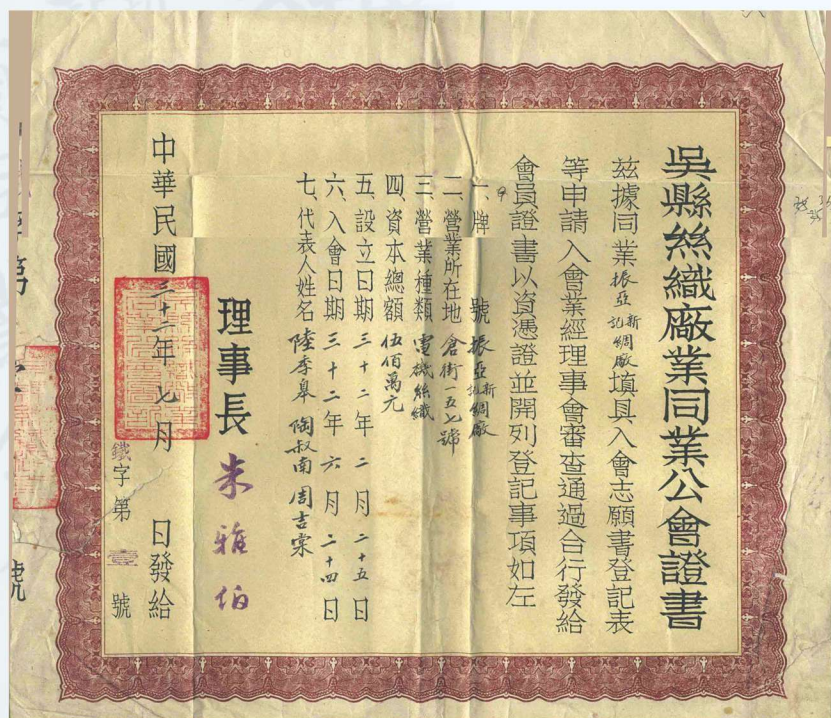 吳縣絲織廠業同業公會證書
茲據同業振亞新記綢廠填具入會志願書登記表
等申請入會業經理事會審查通過合行發給
會員證書以資憑證並開列登記事項如左
一、牌號 振亞新記綢廠
二、營業所在地 倉街一五七號
三、營業種類 電機絲織
四、資本總額 伍佰萬元
五、設立日期 三十二年二月二十五日
六、入會日期 三十二年六月二十四日
七、代表人姓名 陸季皋 陶叔南 周吉棠
理事長 朱雅伯
中華民國三十二年七月 日發給
鐵字第壹號
字第
號